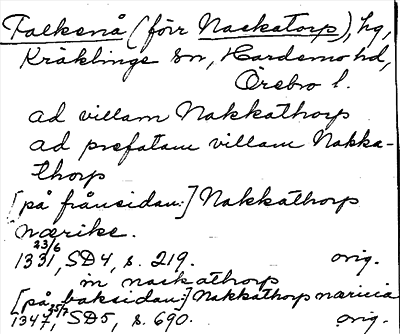 Falkenå (förr Nackatorp), hg,
Kräklinge sn, Hardemo hd,
Örebro l.
ad villam Nakkathorp
ad prefatam villam Nakka-
thorp
[på frånsidan:] Nakkathorp
nærike.
1331 23/6, SD4, s. 219. orig.
in nackathorp
[på baksidan:] Nakkathorp næricia
1347, SD5, s. 690. orig.